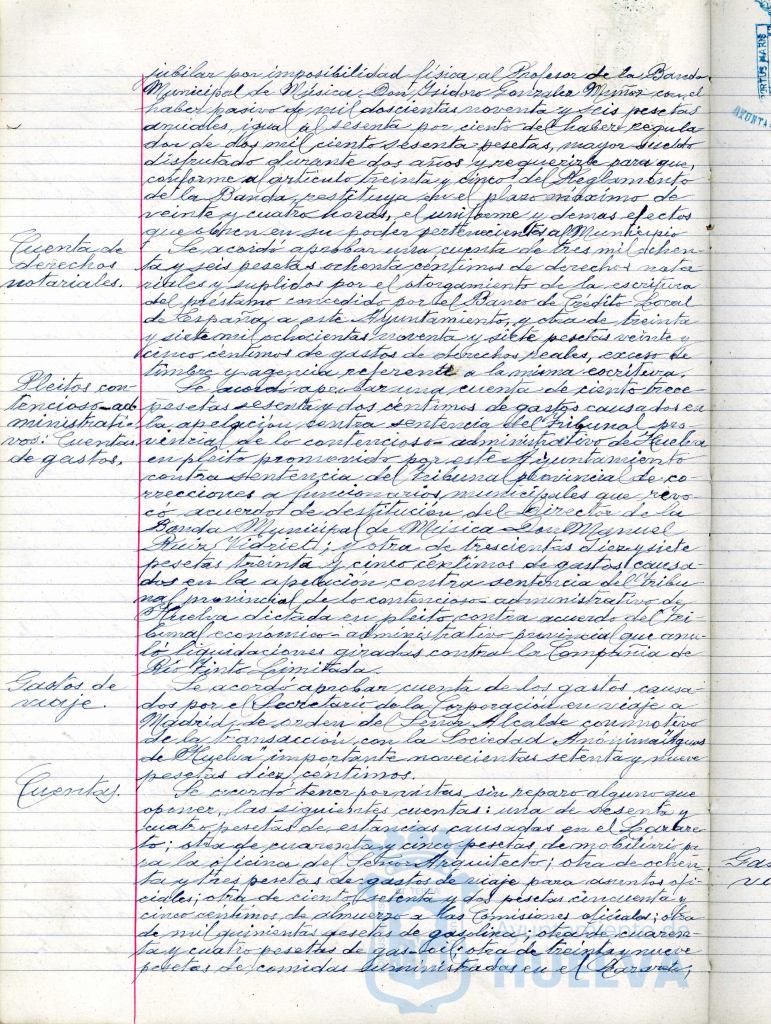 jubilar por imposibilidad física al Profesor de la Banda
Municipal de Música Don Isidoro Gonzalez Muñoz con el
haber pasivo de mil doscientas noventa y seis pesetas
anuales, igual al sesenta por ciento del haber regula-
dor de dos mil ciento sesenta pesetas, mayor sueldo
disfrutado durante dos años y requerirle para que,
conforme al artículo treinta y cinco del Reglamento
de la Banda, restituya en el plazo máximo de
veinte y cuatro horas, el uniforme y demas efectos
que obren en su poder pertenecientes al Municipio
Cuenta de
derechos
notariales.
Se acordó aprobar una cuenta de tres mil ochen-
ta y seis pesetas ochenta céntimos de derechos nota-
riales y suplidos por el otorgamiento de la escritura
del préstamo concedido por el Banco de Crédito Local
de España, a este Ayuntamiento, y otra de treinta
y siete mil ochocientas noventa y siete pesetas veinte y
cinco centimos de gastos de derechos reales, exceso de
timbre y agencia referente a la misma escritura.
Pleitos con-
tencioso-ad-
ministrati-
vos: Cuentas
de gastos.
Se acordó aprobar una cuenta de ciento trece
pesetas sesenta y dos céntimos de gastos causados en
la apelación contra sentencia del Tribunal pro-
vincial de lo contencioso-administrativo de Huelva
en pleito promovido por este Ayuntamiento
contra sentencia del tribunal provincial de co-
rrecciones a funcionarios municipales que revo-
có acuerdo de destitución del Director de la
Banda Municipal de Música Don Manuel
Ruiz Vidriet; y otra de trescientas diez y siete
pesetas treinta y cinco centimos de gastos causa-
dos en la apelación contra sentencia del Tribu-
nal provincial de lo contencioso-administrativo de
Huelva dictada en pleito contra acuerdo del Tri-
bunal económico-administrativo provincial que anu-
ló liquidaciones giradas contra la Compañia de
Rio Tinto Limitada.
Gastos de
viaje.
Se acordó aprobar cuenta de los gastos causa-
dos por el Secretario de la Corporación en viaje a
Madrid, de orden del Señor Alcalde con motivo
de la transacción con la Sociedad Anónima "Aguas
de Huelva" importante novecientas setenta y nueve
pesetas diez centimos.
Cuentas.
Se acordó tener por vistas, sin reparo alguno que
oponer, las siguientes cuentas: una de sesenta y
cuatro pesetas de estancias causadas en el Lazare-
to; otra de cuarenta y cinco pesetas de mobiliario pa-
ra la oficina del Señor Arquitecto; otra de ochen-
ta y tres pesetas de gastos de viaje para asuntos ofi-
ciales; otra de ciento setenta y dos pesetas cincuenta y
cinco centimos de almuerzo a las Comisiones oficiales; otra
de mil quinientas pesetas de gasolina; otra de cuaren-
ta y cuatro pesetas de gas-oil; otra de treinta y nueve
pesetas de comidas suministradas en el Lazareto;
Ayuntamiento de
HUELVA